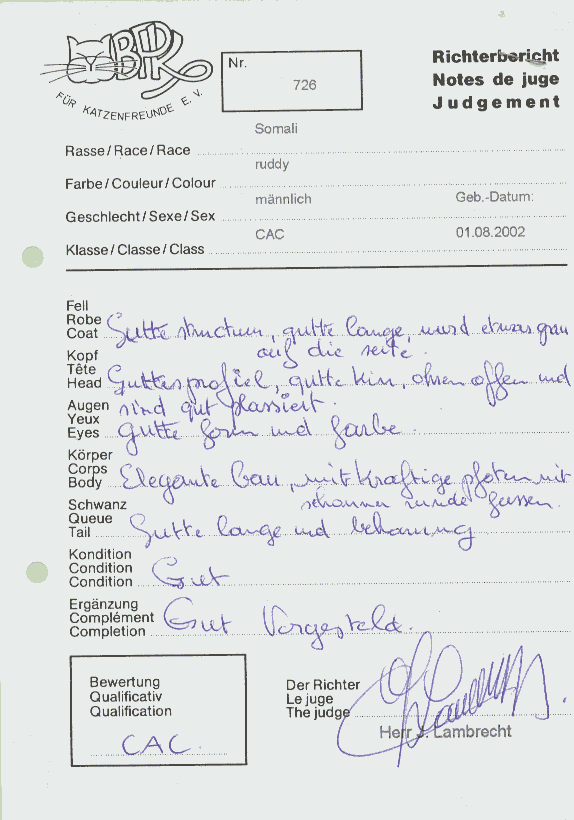 BPK
FÜR KATZENFREUNDE E. V.
Nr.
726
Richterbericht
Notes de juge
Judgement
Somali
Rasse / Race / Race
ruddy
Farbe / Couleur / Colour
männlich
Geb.-Datum:
Geschlecht / Sexe / Sex
CAC
01.08.2002
Klasse / Classe / Class
Fell
Robe
Coat Gutte structuur, gutte lange, wird etwas grau
auf die seite.
Kopf
Tête
Head Guttes profiel, gutte kin, ohren offen und
sind gut plassiert.
Augen
Yeux
Eyes gutte form und farbe.
Körper
Corps
Body Elegante bau, mit kraftige pfoten mit
schonen runde fussen.
Schwanz
Queue
Tail Gutte lange und beharung
Kondition
Condition
Condition Gut
Ergänzung
Complément
Completion Gut Vorgesteld.
Bewertung
Qualificatif
Qualification
CAC.
Der Richter
Le juge
The judge
Herr J. Lambrecht